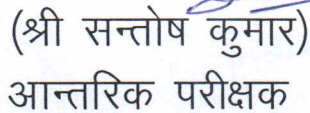 (श्री सन्तोष कुमार)
आन्तरिक परीक्षक